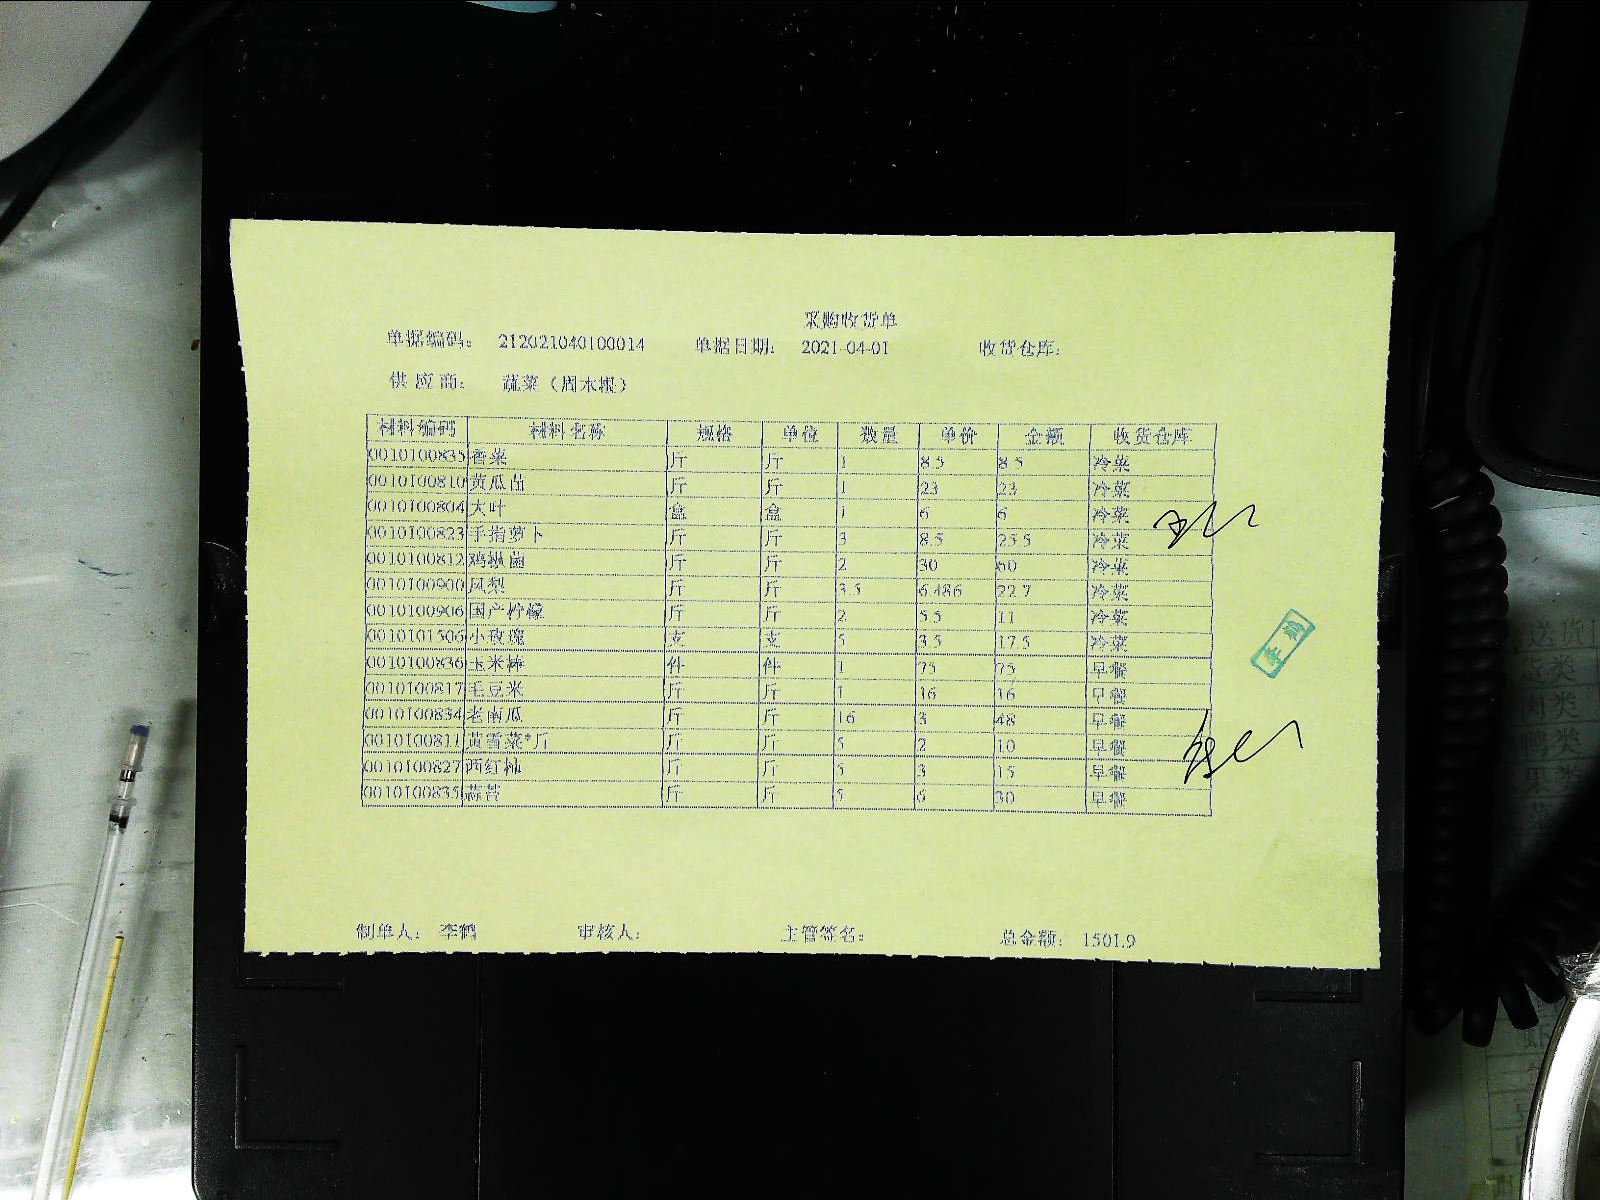 采购收货单
单据编码： 212021040100014 单据日期： 2021-04-01 收货仓库：
供应商： 蔬菜（周木根）
材料编码 材料名称 规格 单位 数量 单价 金额 收货仓库
0010100835 香菜 斤 斤 1 8.5 8.5 冷菜
0010100810 黄瓜苗 斤 斤 1 23 23 冷菜
0010100804 大叶 盒 盒 1 6 6 冷菜
0010100823 手指萝卜 斤 斤 3 8.5 25.5 冷菜
0010100812 鸡枞菌 斤 斤 2 30 60 冷菜
0010100900 凤梨 斤 斤 3.5 6.486 22.7 冷菜
0010100906 国产柠檬 斤 斤 2 5.5 11 冷菜
0010101506 小玫瑰 支 支 5 3.5 17.5 冷菜
0010100836 玉米棒 件 件 1 75 75 早餐
0010100817 毛豆米 斤 斤 1 16 16 早餐
0010100834 老南瓜 斤 斤 16 3 48 早餐
0010100811 黄雪菜*斤 斤 斤 5 2 10 早餐
0010100827 西红柿 斤 斤 5 3 15 早餐
0010100835 蒜苔 斤 斤 5 6 30 早餐
李鹤
制单人： 李鹤 审核人： 主管签名： 总金额： 1501.9